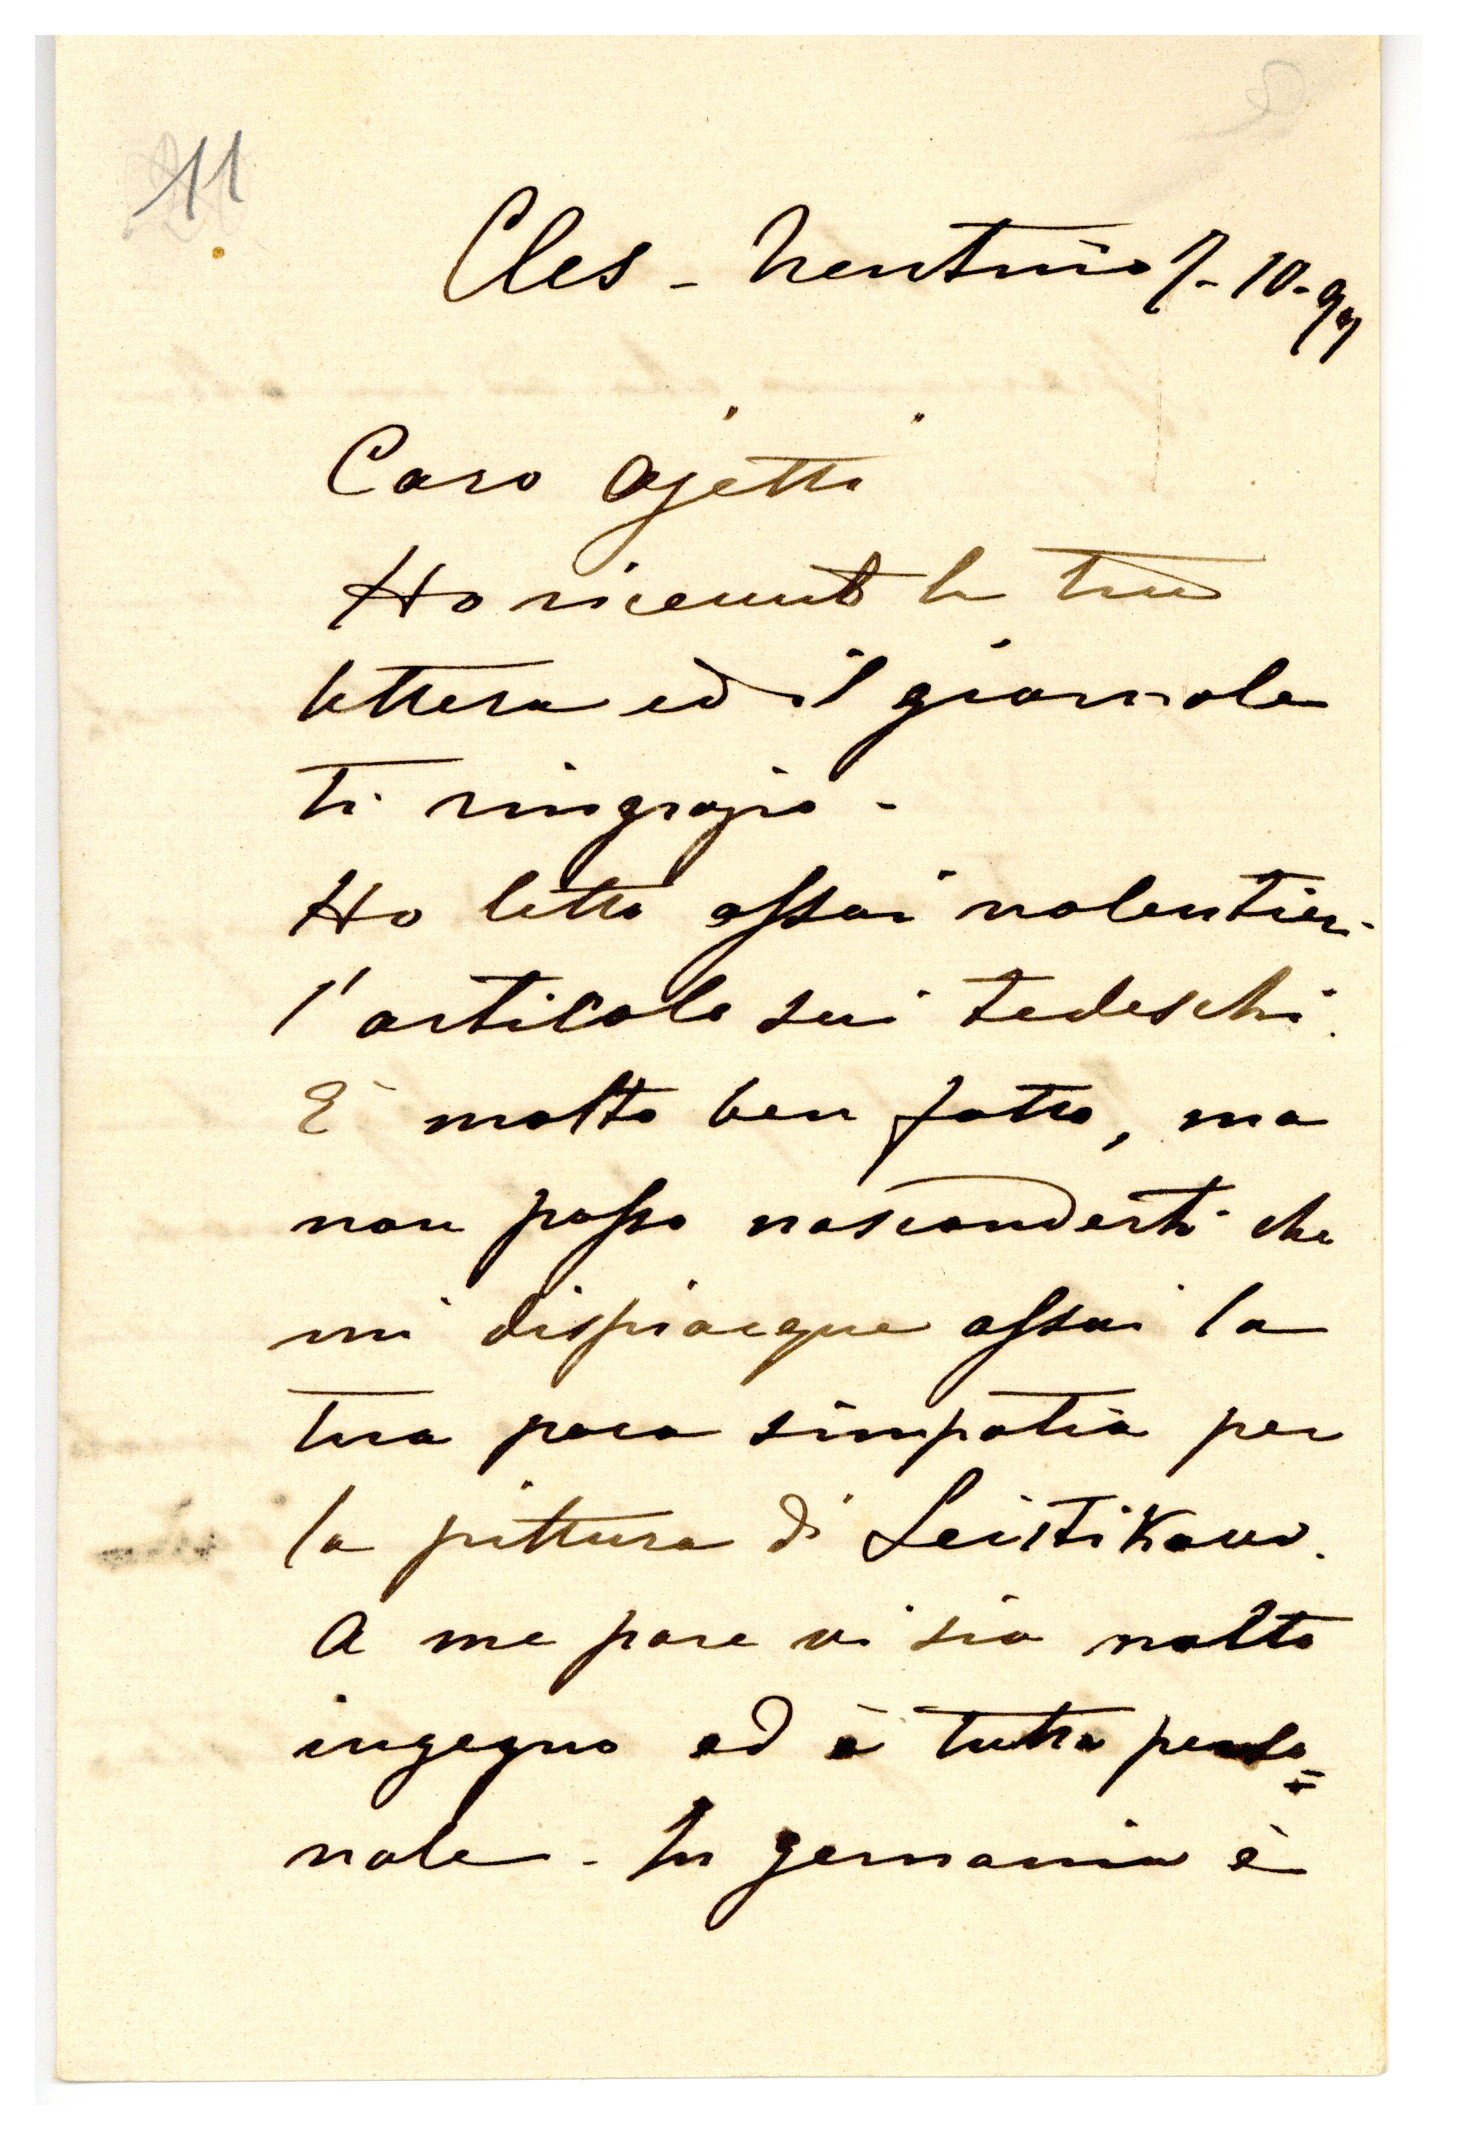 11
Cles - Trentino 7-10-97
Caro Ojetti
Ho ricevuto la tua
lettera ed il giornale
ti ringrazio -
Ho letto assai volentieri
l'articolo sui tedeschi.
È molto ben fatto, ma
non posso nasconderti che
mi dispiacque assai la
tua poca simpatia per
la pittura di Leistikow.
A me pare vi sia molto
ingegno ed è tutta perso=
nale - In Germania è